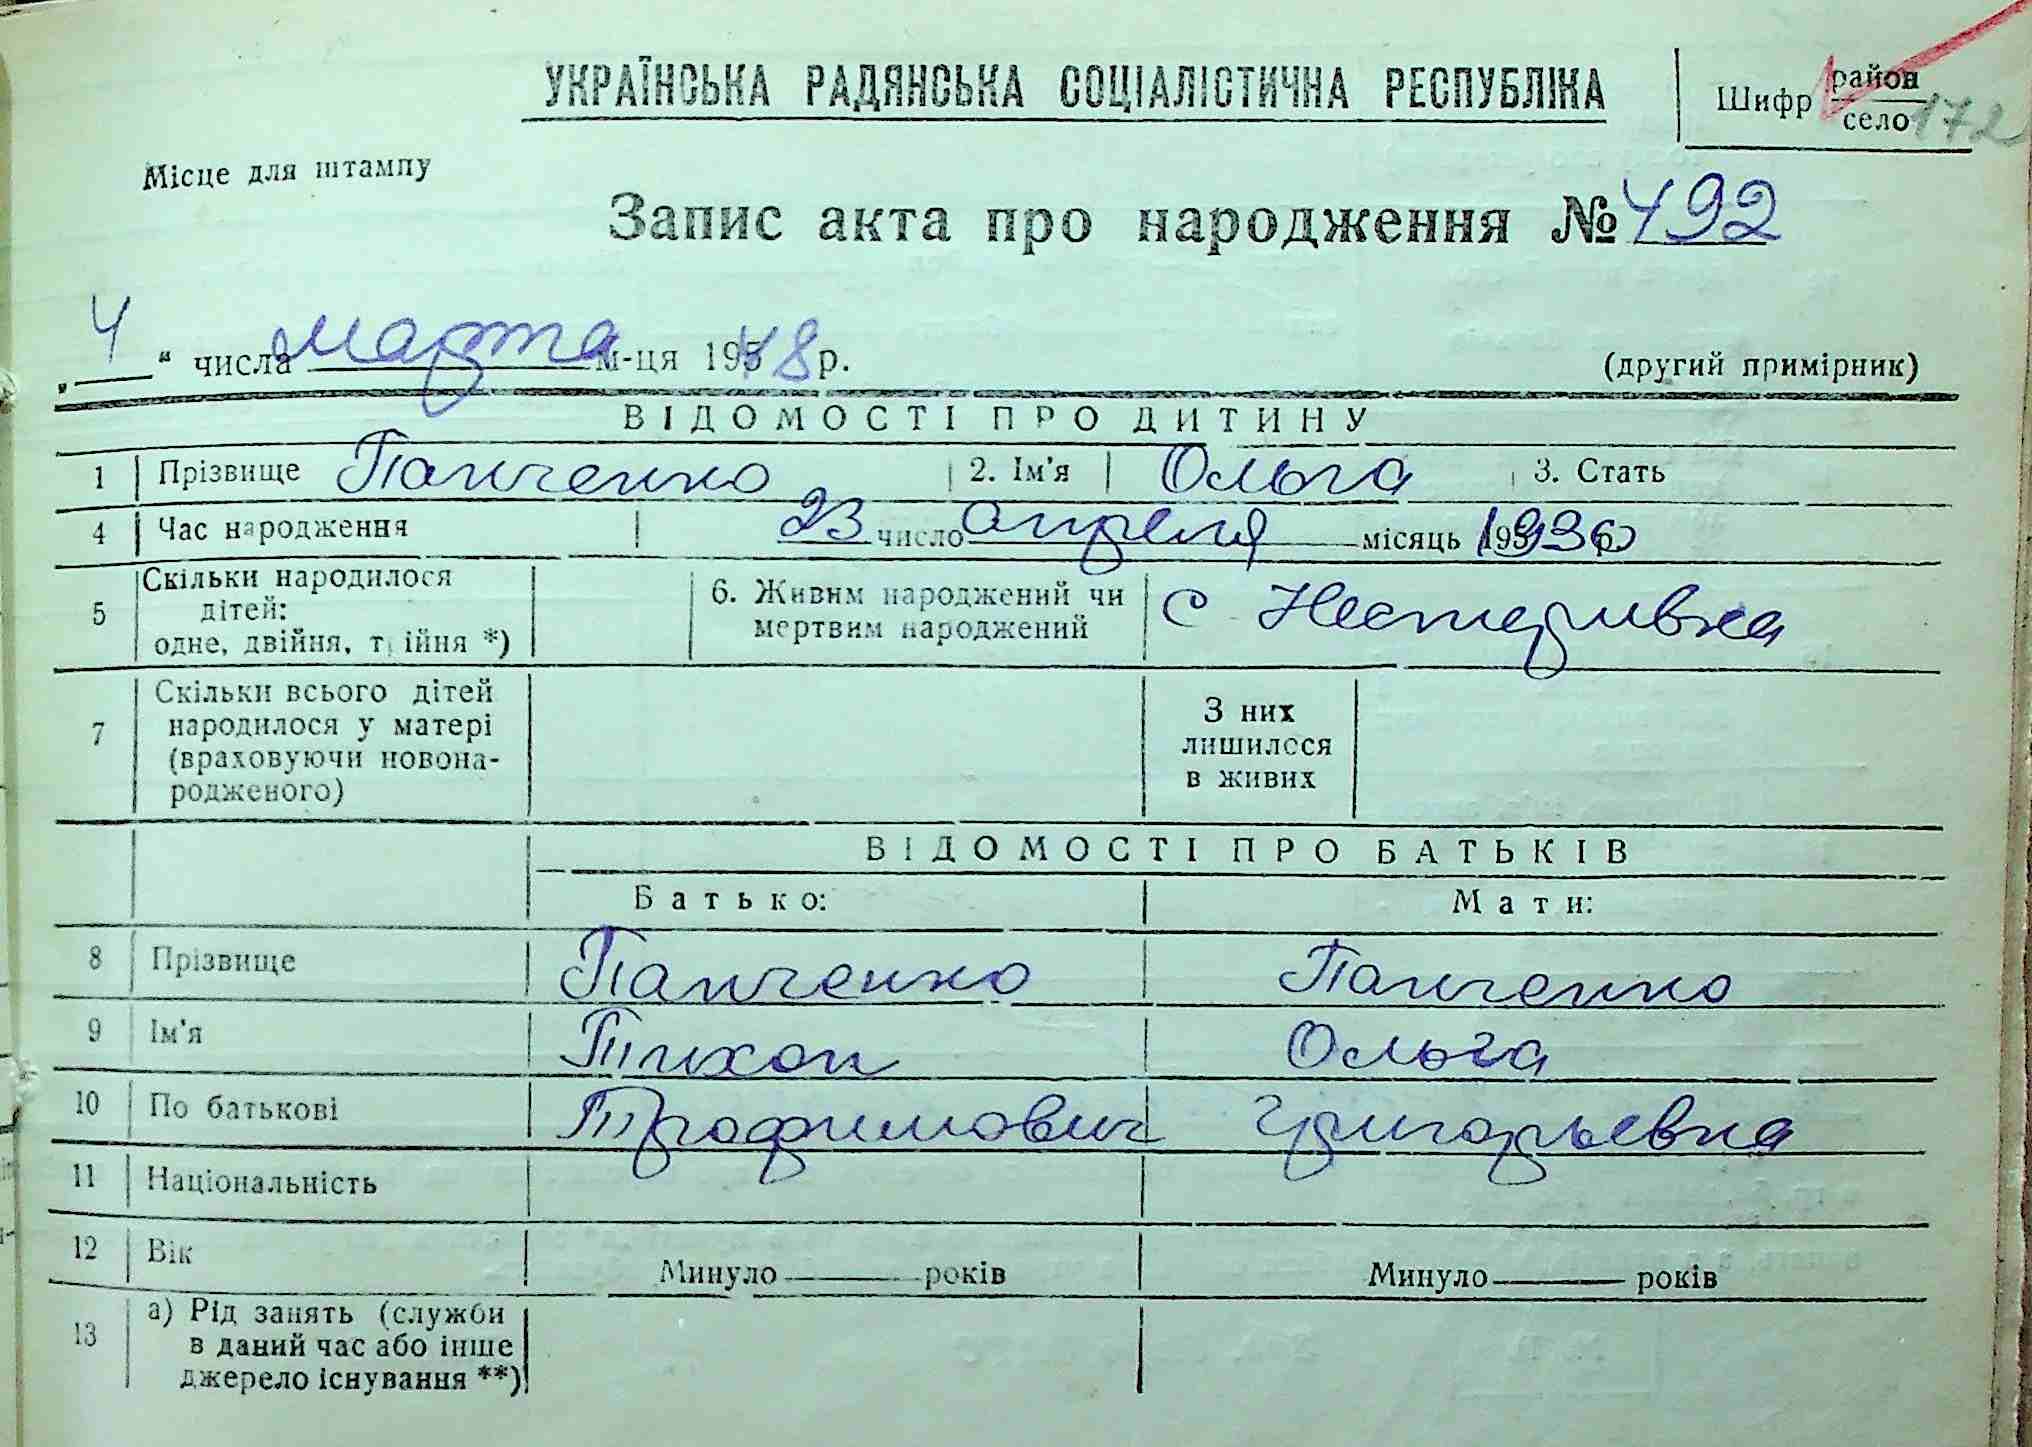 УКРАЇНСЬКА РАДЯНСЬКА СОЦІАЛІСТИЧНА РЕСПУБЛІКА
Шифр район
село 172
Місце для штампу
Запис акта про народження № 492
„ 4 “ числа марта м-ця 1948 р.
(другий примірник)
ВІДОМОСТІ ПРО ДИТИНУ
1 Прізвище Панченко 2. Ім'я Ольга 3. Стать
4 Час народження 23 число апреля місяць 1936
5 Скільки народилося дітей: одне, двійня, трійня *) 6. Живим народжений чи мертвим народжений с. Нестеривка
7 Скільки всього дітей народилося у матері (враховуючи новона-родженого) З них лишилося в живих
ВІДОМОСТІ ПРО БАТЬКІВ
Батько: Мати:
8 Прізвище Панченко Панченко
9 Ім'я Тихон Ольга
10 По батькові Трофимович Григорьевна
11 Національність
12 Вік Минуло років Минуло років
13 а) Рід занять (служби в даний час або інше джерело існування **)